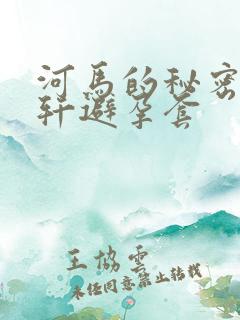 河马的秘密
轩避孕套
王协云
未经同意禁止转载